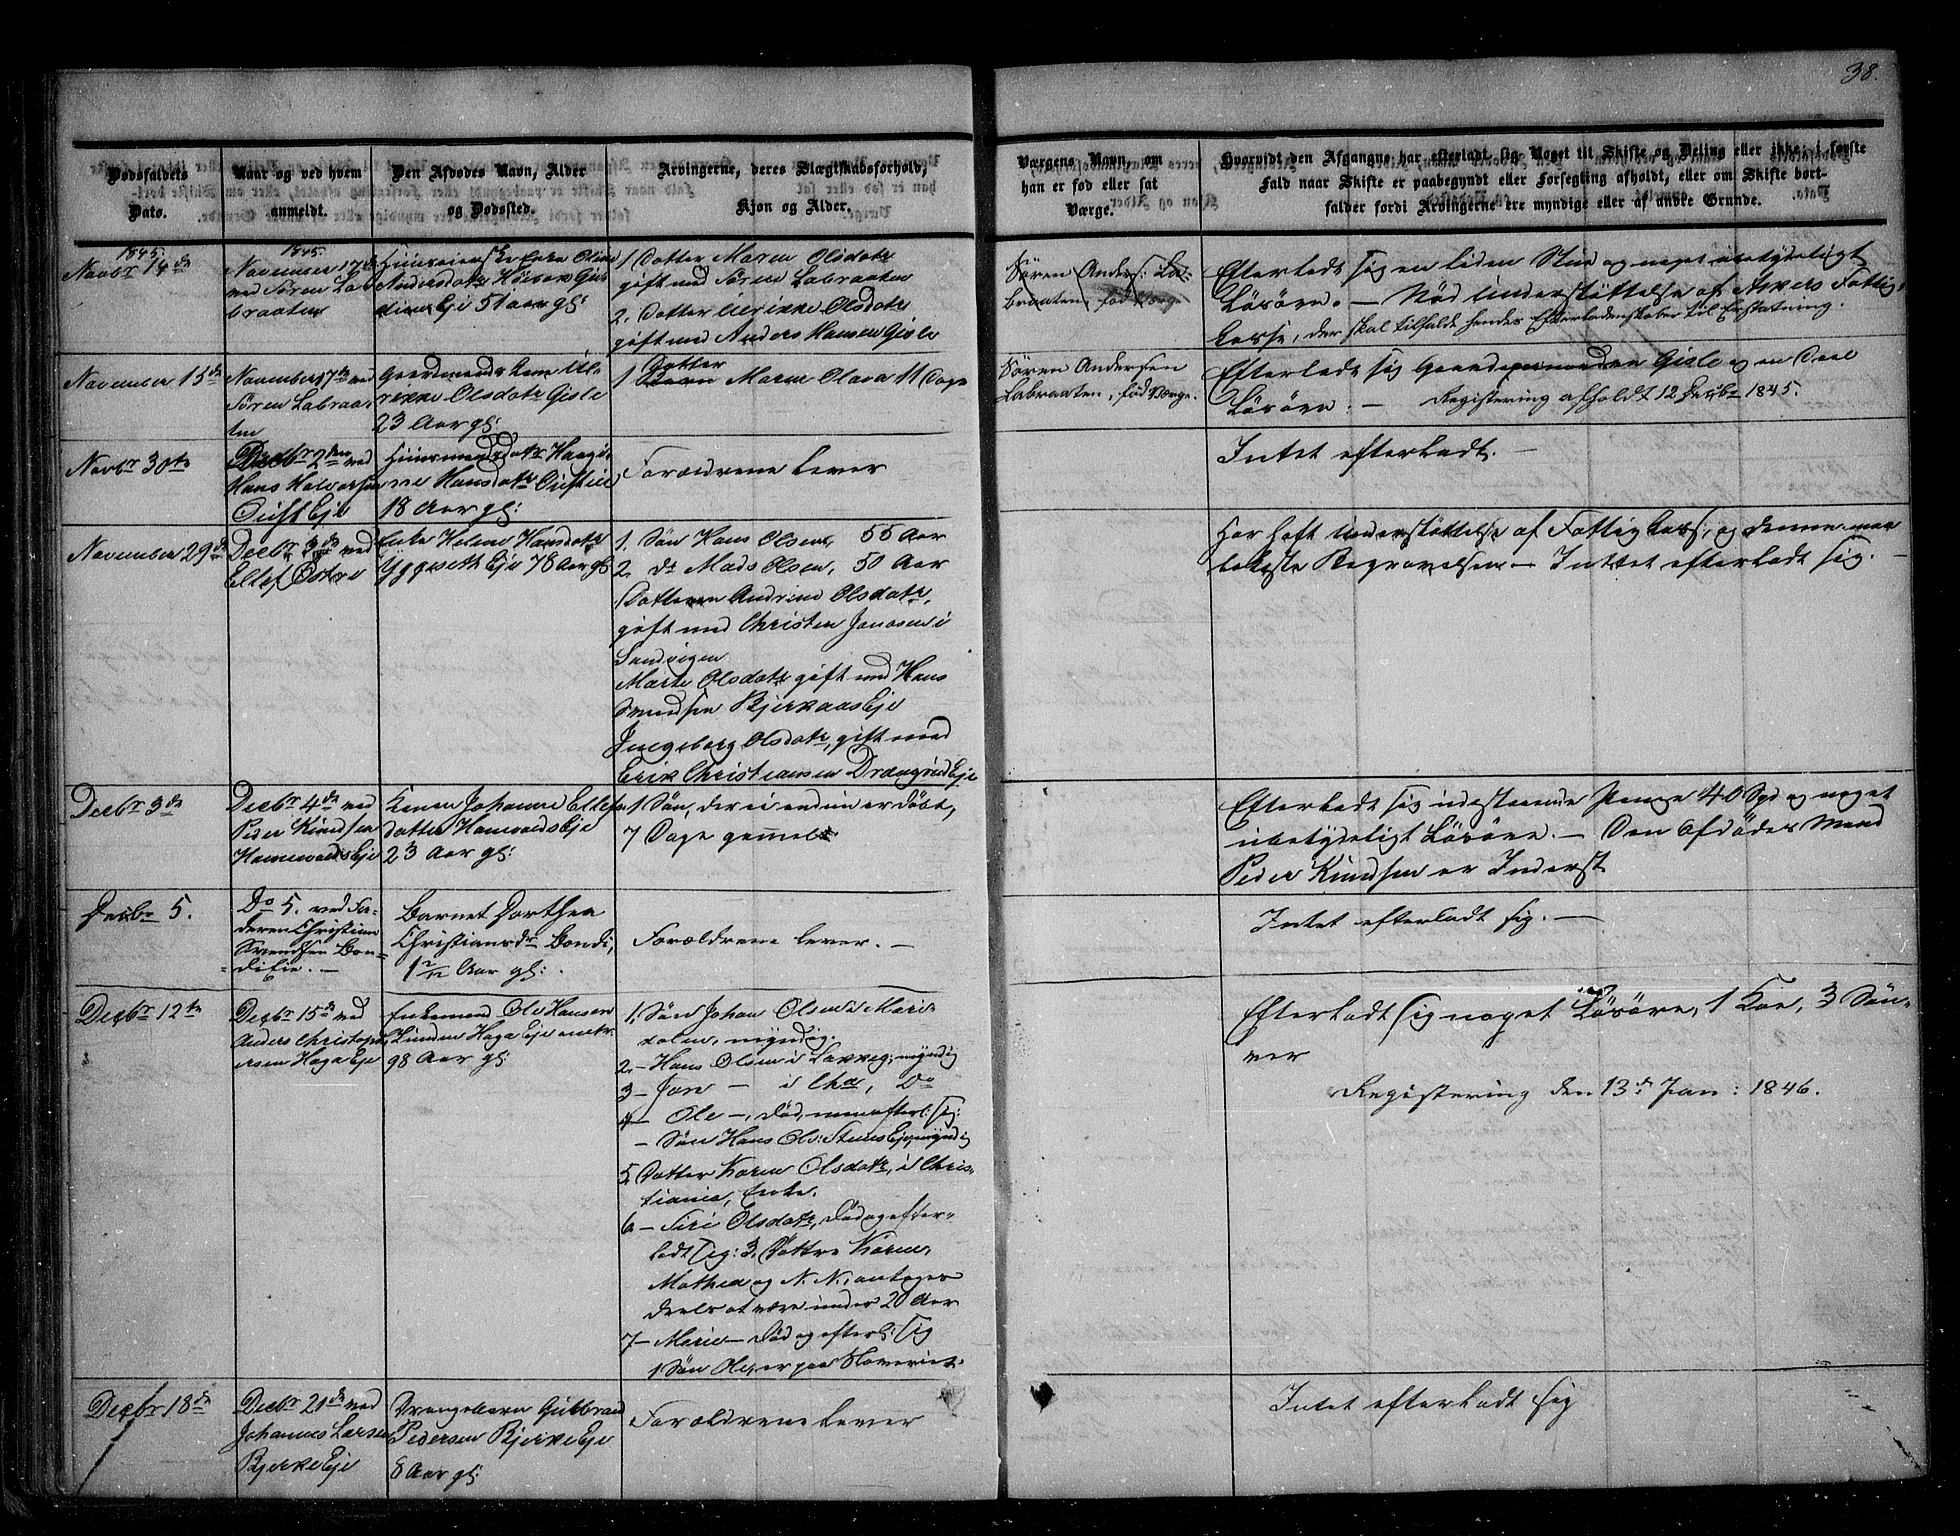 38.
Dødsfaldets
Dato.
Naar og ved hvem
anmeldt.
Den Afdødes Navn, Alder
og Dødssted.
Arvingerne, deres Slægtskabsforhold,
Kjøn og Alder.
Værgens Navn, om
han er fød eller sat
Værge.
Hvorvidt den Afgangne har efterladt sig Noget til Skifte og Deling eller ikke; i første
Fald naar Skifte er paabegyndt eller Forsegling afholdt, eller om Skifte bort-
falder fordi Arvingerne ere myndige eller af andre Grunde.
1845.
Novbr 14de
1845.
November 17de
ved Søren Lab
braaten
Enke Oline
Andersdatr
Eje 51 aar gl:
1 Datter Maren Olsdatr
gift med Søren Labraaten
2. Datter Ulrikke Olsdatr
gift med Anders Hansen Gisle
Søren Anders: La-
braaten, fød Værge
Efterladt sig en liden Stue og noget ubetydeligt
Løsøre. — Nød Understøttelse af Askers Fattig-
kasse, der skal tilfalde hendes Efterladenskaber til Erstatning.
November 15de
November 17de ved
Søren Labraa-
ten
Gaardmands Kone Ul-
rikke Olsdatr Gisle
23 Aar gl:
1 Datter Maren Olava 11 Dage
Søren Andersen
Labraaten, fød Værge.
Efterladt sig Gaardparten Gisle og en Deel
Løsøre. — Registering afholdt 12 Decbr 1845.
Novbr 30te
Decbr 2den ved
Hans Halvorsen
Eje
Huusmandsdatr
Hansdatr
18 Aar gl:
Forældrene lever
Intet efterladt. —
November 29de
Decbr 3de ved
Ellef Østre
Enke Helene Hansdatr
Yggeseth Eje 78 Aar gl:
1. Søn Hans Olsen, 55 Aar
2. do Mads Olsen, 50 Aar
Datteren Andrine Olsdatr,
gift med Christen Jonasen i
Sandvigen
Marte Olsdatr gift med Hans
Svendsen Bjerkaas Eje
Ingeborg Olsdatr, gift med
Erik Christiansen Drængsrud Eje
Har haft Understøttelse af Fattigkass: og denne
bekoste Begravelsen — Intet efterladt sig. —
Decbr 3de
Decbr 4de ved
Peder Knudsen
Hanevolds Eje
Konen Johanne Ellefs
datter Hanevolds Eje
23 Aar gl:
1 Søn, der ei endnu er døbt,
7 Dage gammel
Efterladt sig udestaaende Penge 40 Spd og noget
ubetydeligt Løsøre. — Den Afdødes Mand
Peder Knudsen er Inderst
Decbr 5.
Do 5. ved Fa-
deren Christian
Svendsen Bon-
di Eie. —
Barnet Dorthea
Christiansdr Bondi,
1 2/12 Aar gl: .
Forældrene lever. —
Intet efterladt sig. —
Decbr 12te
Decbr 15de ved
Anders Christoph-
ersen Haga Eje
Enkemand Ole Hansen
Linden Haga Eje
98 Aar gl:
1. Søn Johan Olsen i Mari-
dalen, myndig.
2 — Hans Olsen i myndig
3 — Jon — i Chra, Do
4 — Ole —, død, men efterl: sig:
— Søn Hans Ols: Eje, myndig
5 Datter Karen Olsdatr, i Chris-
tiania, Enke.
6 — Siri Olsdatr, død og efter-
ladt sig: 3 Døttre Karen,
Mathea og N. N., antages
deels at være under 20 Aar
7 — Marie — død og efterl: sig
1 Søn Ole, er paa Slaveriet.
Efterladt sig noget Løsøre, 1 Koe, 3 Søn-
ner
Registering den 13de Jan: 1846.
Decbr 18de
Decbr 21de ved
Johannes Larsen
Bjerke Eje
Drengebarn Gulbrand
Pedersen Bjerke Eje
8 Aar gl:
Forældrene lever
Intet efterladt sig